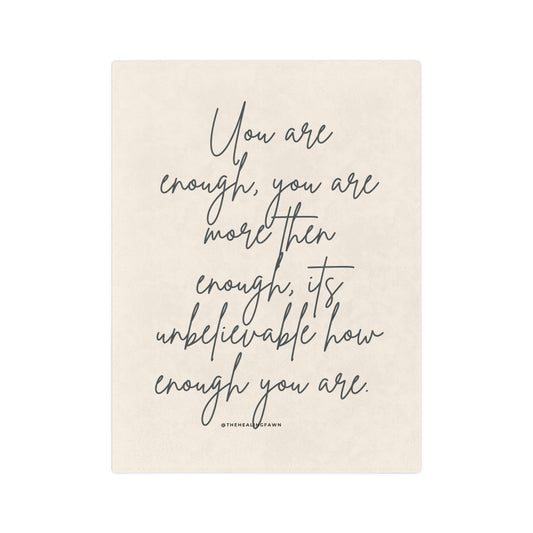 You are
enough, you are
more then
enough, it's
unbelievable how
enough you are.
@THEHEALINGFAWN